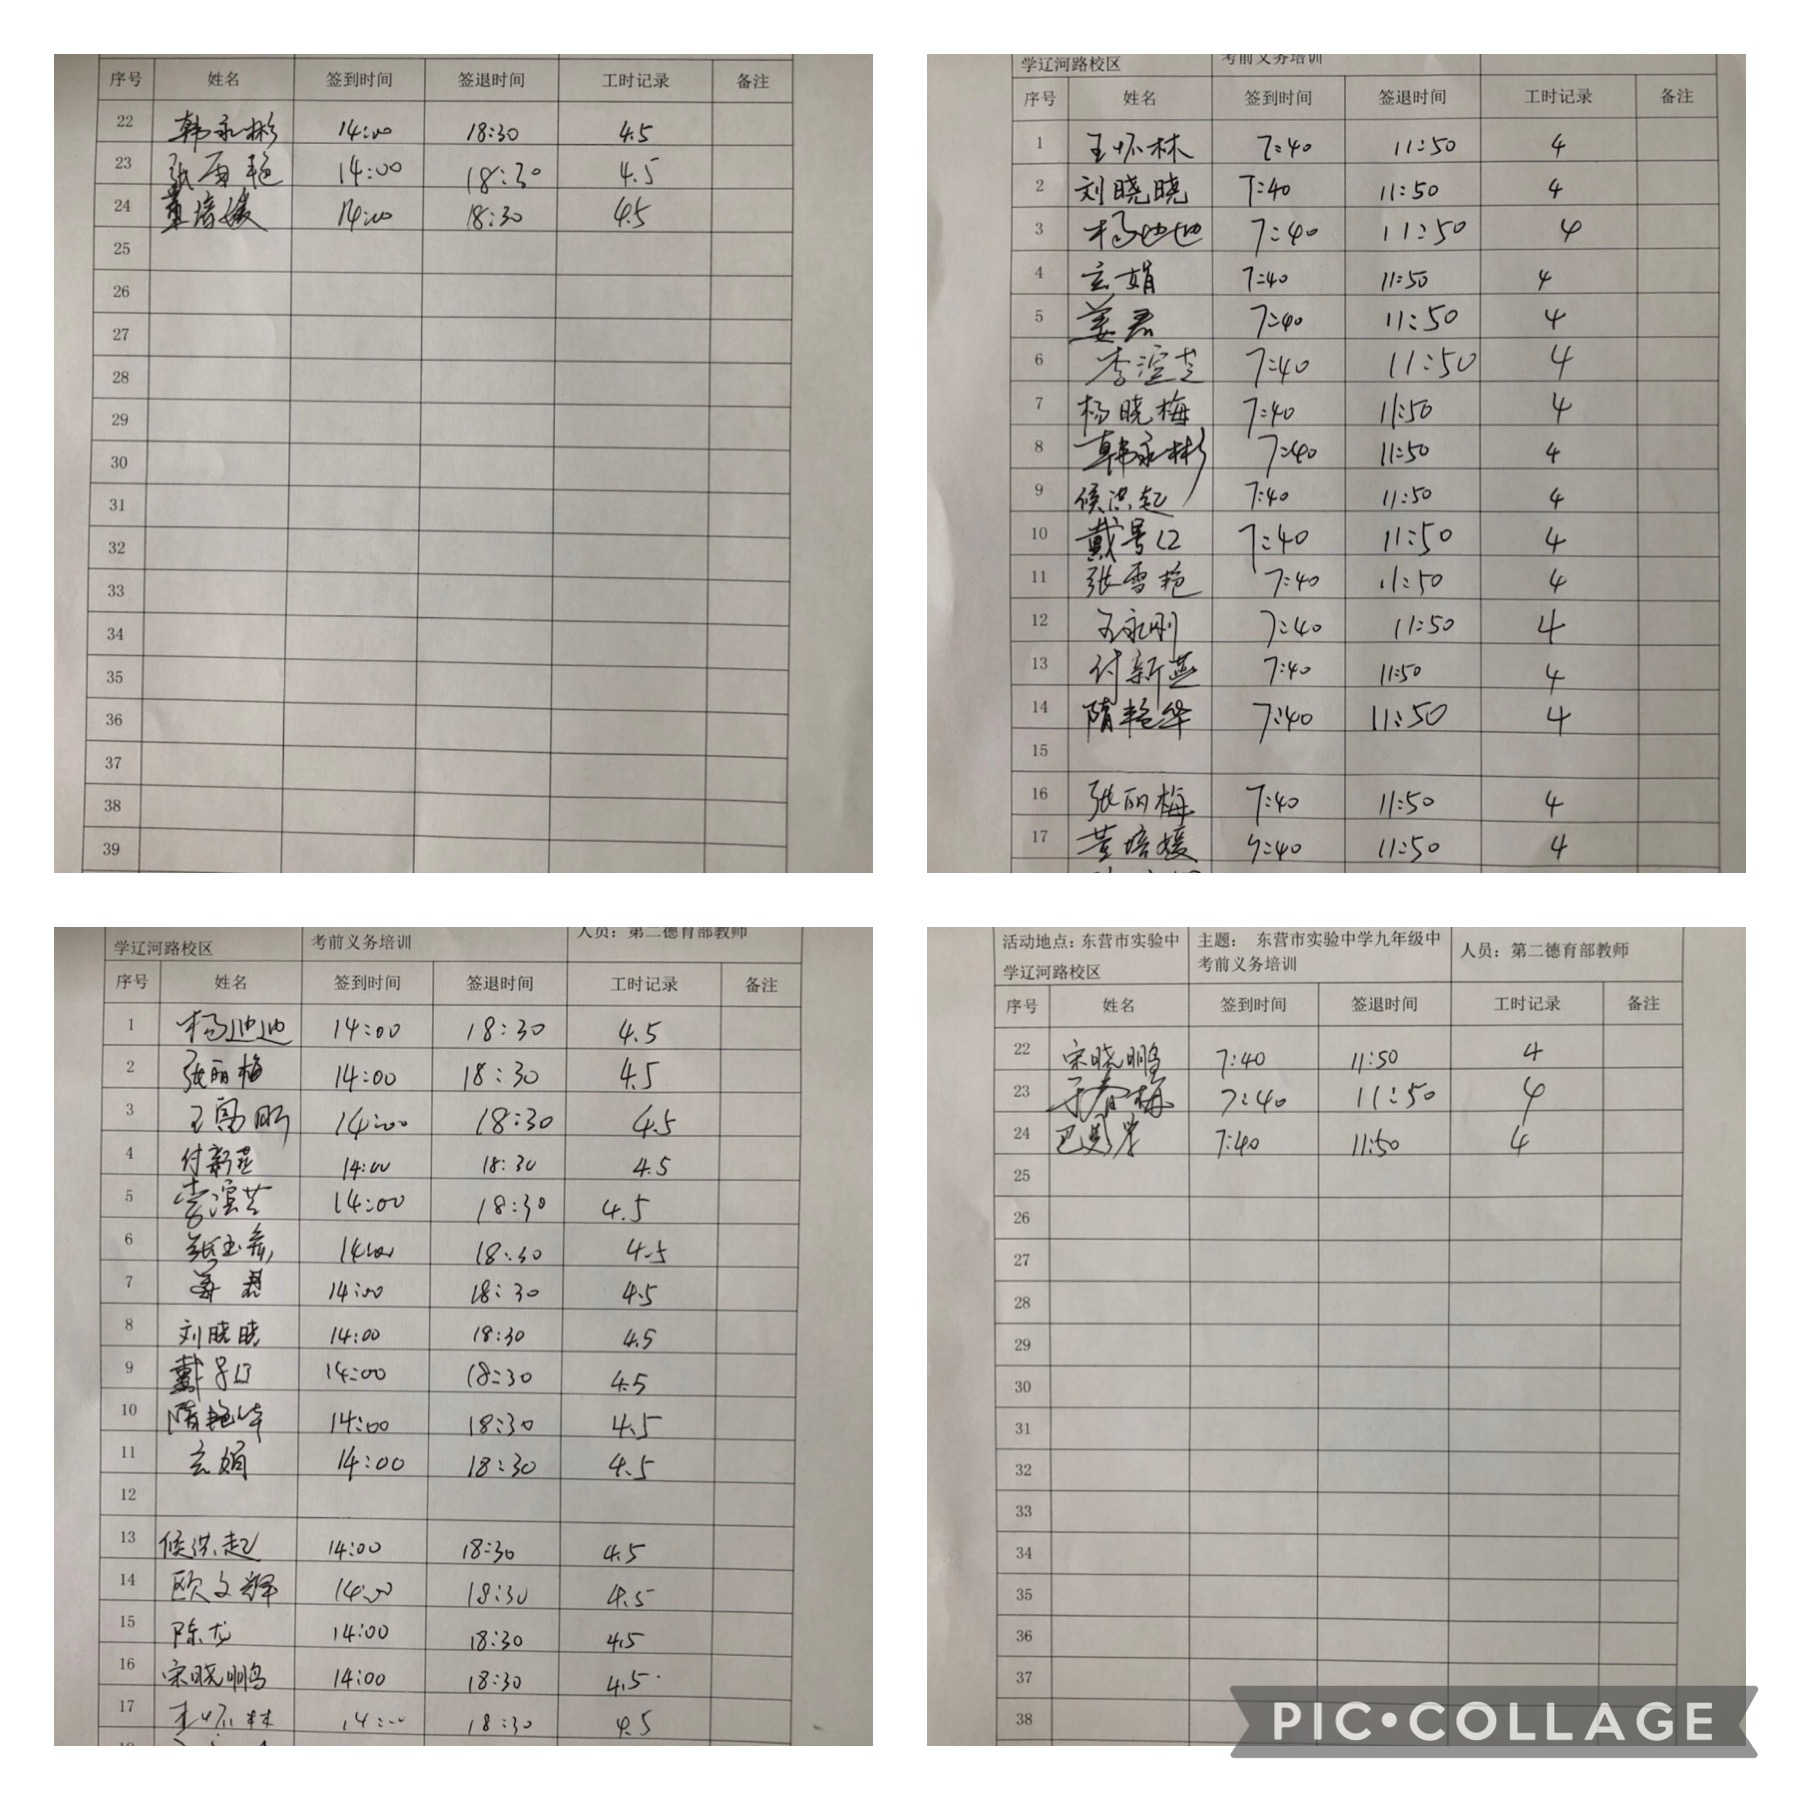 序号 姓名 签到时间 签退时间 工时记录 备注
22 韩永彬 14:00 18:30 4.5
23 张雪艳 14:00 18:30 4.5
24 董培媛 14:00 18:30 4.5
25
26
27
28
29
30
31
32
33
34
35
36
37
38
39
学辽河路校区 考前义务培训
序号 姓名 签到时间 签退时间 工时记录 备注
1 王怀林 7:40 11:50 4
2 刘晓晓 7:40 11:50 4
3 杨地地 7:40 11:50 4
4 玄娟 7:40 11:50 4
5 姜君 7:40 11:50 4
6 李滢芝 7:40 11:50 4
7 杨晓梅 7:40 11:50 4
8 韩永彬 7:40 11:50 4
9 侯洪起 7:40 11:50 4
10 戴号江 7:40 11:50 4
11 张雪艳 7:40 11:50 4
12 王永刚 7:40 11:50 4
13 付新燕 7:40 11:50 4
14 隋艳华 7:40 11:50 4
15
16 张丽梅 7:40 11:50 4
17 董培媛 7:40 11:50 4
学辽河路校区 考前义务培训 人员：第二德育部教师
序号 姓名 签到时间 签退时间 工时记录 备注
1 14:00 18:30 4.5
2 张丽梅 14:00 18:30 4.5
3 14:00 18:30 4.5
4 付新燕 14:00 18:30 4.5
5 14:00 18:30 4.5
6 14:00 18:30 4.5
7 姜君 14:00 18:30 4.5
8 刘晓晓 14:00 18:30 4.5
9 14:00 18:30 4.5
10 隋艳华 14:00 18:30 4.5
11 玄娟 14:00 18:30 4.5
12
13 侯洪起 14:00 18:30 4.5
14 欧文辉 14:00 18:30 4.5
15 陈龙 14:00 18:30 4.5
16 宋晓鹏 14:00 18:30 4.5
17 王怀林 14:00 18:30 4.5
活动地点：东营市实验中 主题： 东营市实验中学九年级中
学辽河路校区 考前义务培训 人员：第二德育部教师
序号 姓名 签到时间 签退时间 工时记录 备注
22 宋晓鹏 7:40 11:50 4
23 于春梅 7:40 11:50 4
24 7:40 11:50 4
25
26
27
28
29
30
31
32
33
34
35
36
37
38
PIC•COLLAGE